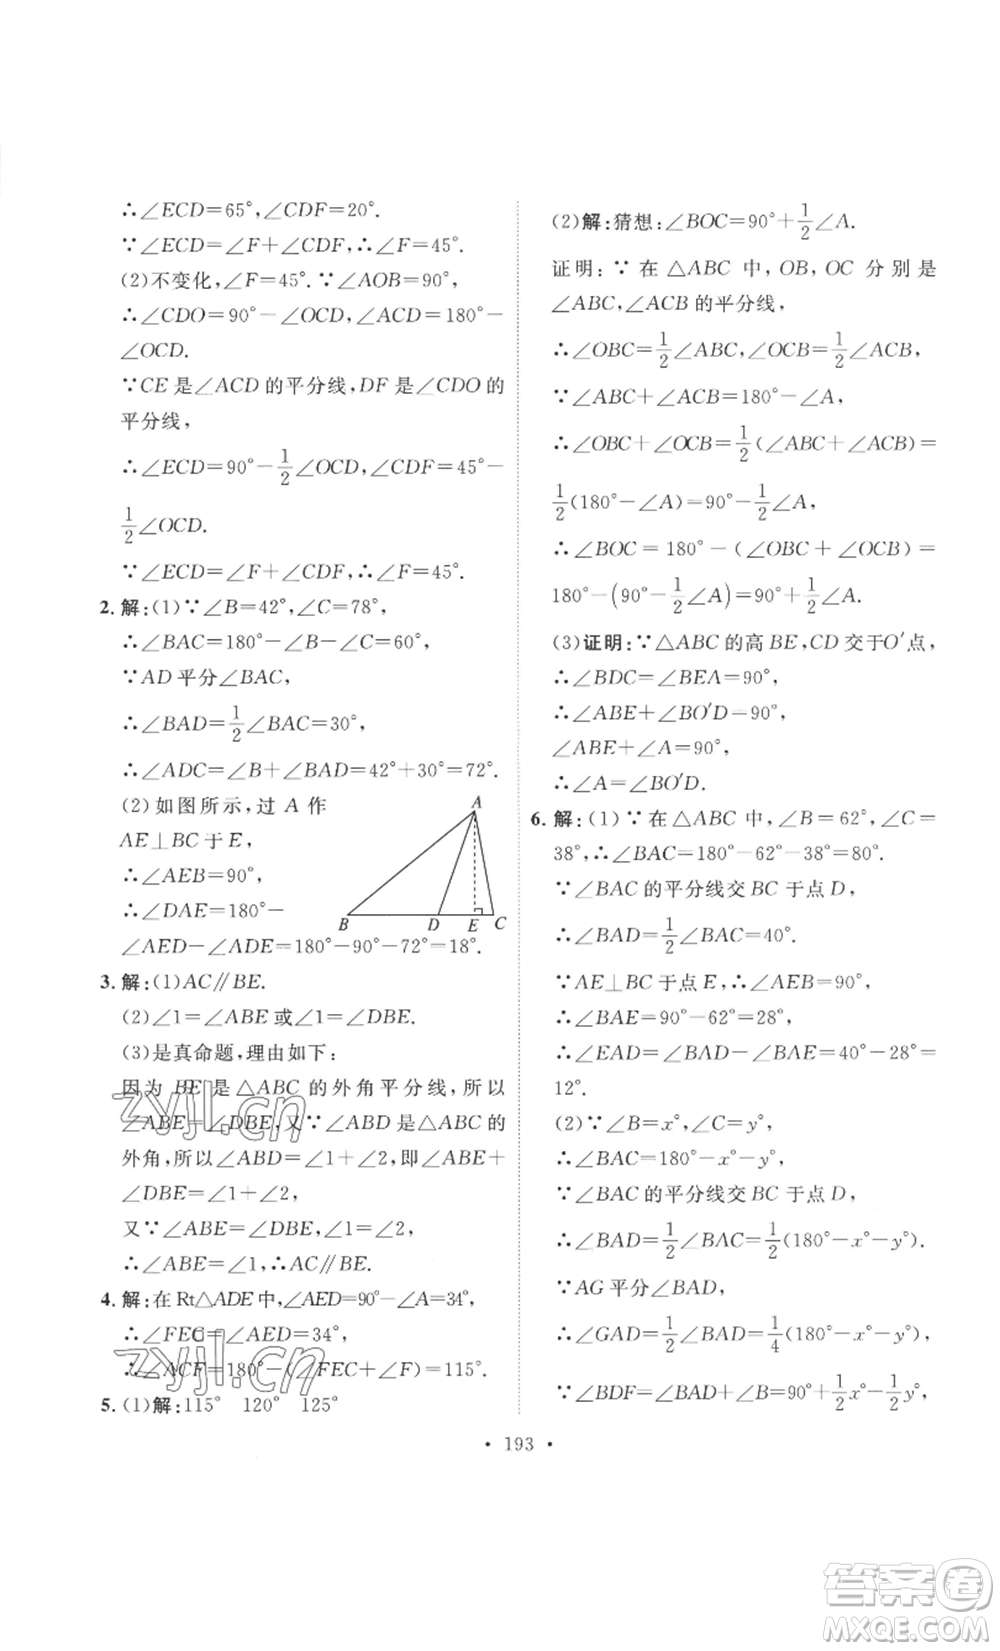 ∴∠ECD=65°,∠CDF=20°.
∵∠ECD=∠F+∠CDF,∴∠F=45°.
(2)不变化,∠F=45°.∵∠AOB=90°,
∴∠CDO=90°-∠OCD,∠ACD=180°-
∠OCD.
∵CE是∠ACD的平分线,DF是∠CDO的
平分线,
∴∠ECD=90°-1/2∠OCD,∠CDF=45°-
1/2∠OCD.
∵∠ECD=∠F+∠CDF,∴∠F=45°.
2.解:(1)∵∠B=42°,∠C=78°,
∴∠BAC=180°-∠B-∠C=60°,
∵AD平分∠BAC,
∴∠BAD=1/2∠BAC=30°,
∴∠ADC=∠B+∠BAD=42°+30°=72°.
(2)如图所示,过A作
AE⊥BC于E,
∴∠AEB=90°,
∴∠DAE=180°-
∠AED-∠ADE=180°-90°-72°=18°.
A
B D E C
3.解:(1)AC∥BE.
(2)∠1=∠ABE或∠1=∠DBE.
(3)是真命题,理由如下:
因为BE是△ABC的外角平分线,所以
∠ABE=∠DBE,又∵∠ABD是△ABC的
外角,所以∠ABD=∠1+∠2,即∠ABE+
∠DBE=∠1+∠2,
又∵∠ABE=∠DBE,∠1=∠2,
∴∠ABE=∠1,∴AC∥BE.
4.解:在Rt△ADE中,∠AED=90°-∠A=34°,
∴∠FEC=∠AED=34°,
∴∠ACF=180°-(∠FEC+∠F)=115°.
5.(1)解:115° 120° 125°
(2)解:猜想:∠BOC=90°+1/2∠A.
证明:∵在△ABC中,OB,OC分别是
∠ABC,∠ACB的平分线,
∴∠OBC=1/2∠ABC,∠OCB=1/2∠ACB,
∵∠ABC+∠ACB=180°-∠A,
∴∠OBC+∠OCB=1/2(∠ABC+∠ACB)=
1/2(180°-∠A)=90°-1/2∠A,
∴∠BOC=180°-(∠OBC+∠OCB)=
180°-(90°-1/2∠A)=90°+1/2∠A.
(3)证明:∵△ABC的高BE,CD交于O′点,
∴∠BDC=∠BEA=90°,
∴∠ABE+∠BO′D=90°,
∠ABE+∠A=90°,
∴∠A=∠BO′D.
6.解:(1)∵在△ABC中,∠B=62°,∠C=
38°,∴∠BAC=180°-62°-38°=80°.
∵∠BAC的平分线交BC于点D,
∴∠BAD=1/2∠BAC=40°.
∵AE⊥BC于点E,∴∠AEB=90°,
∴∠BAE=90°-62°=28°,
∴∠EAD=∠BAD-∠BAE=40°-28°=
12°.
(2)∵∠B=x°,∠C=y°,
∴∠BAC=180°-x°-y°,
∵∠BAC的平分线交BC于点D,
∴∠BAD=1/2∠BAC=1/2(180°-x°-y°).
∵AG平分∠BAD,
∴∠GAD=1/2∠BAD=1/4(180°-x°-y°),
∵∠BDF=∠BAD+∠B=90°+1/2x°-1/2y°,
• 193 •
zyjl.cn
zyjl.cn
答案卷
MXQE.COM